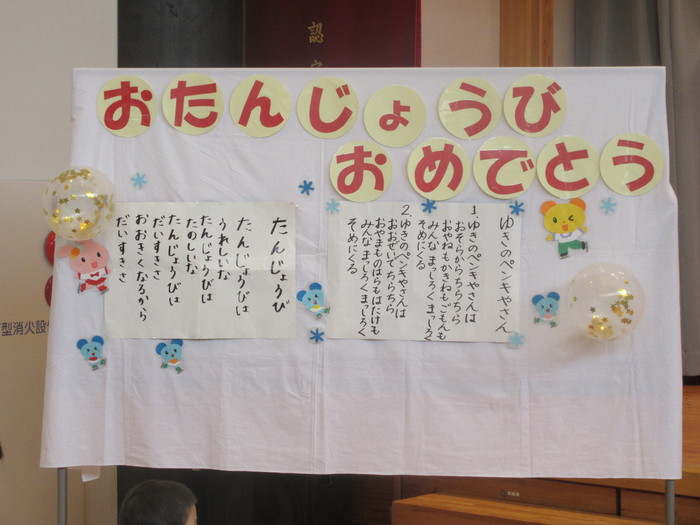 認定
おたんじょうび
おめでとう
ゆきのペンキやさん
1. ゆきのペンキやさんは
おそらからちらちら
おやねもかきねもごもんも
みんなまっしろくまっしろく
そめにくる
2. ゆきのペンキやさんは
おおぜいでちらちら
おやまものはらもはたけも
みんなまっしろくまっしろく
そめにくる
たんじょうび
たんじょうびは
うれしいな
たんじょうびは
たのしいな
たんじょうびは
だいすきさ
おおきくなるから
だいすきさ
型消火設備